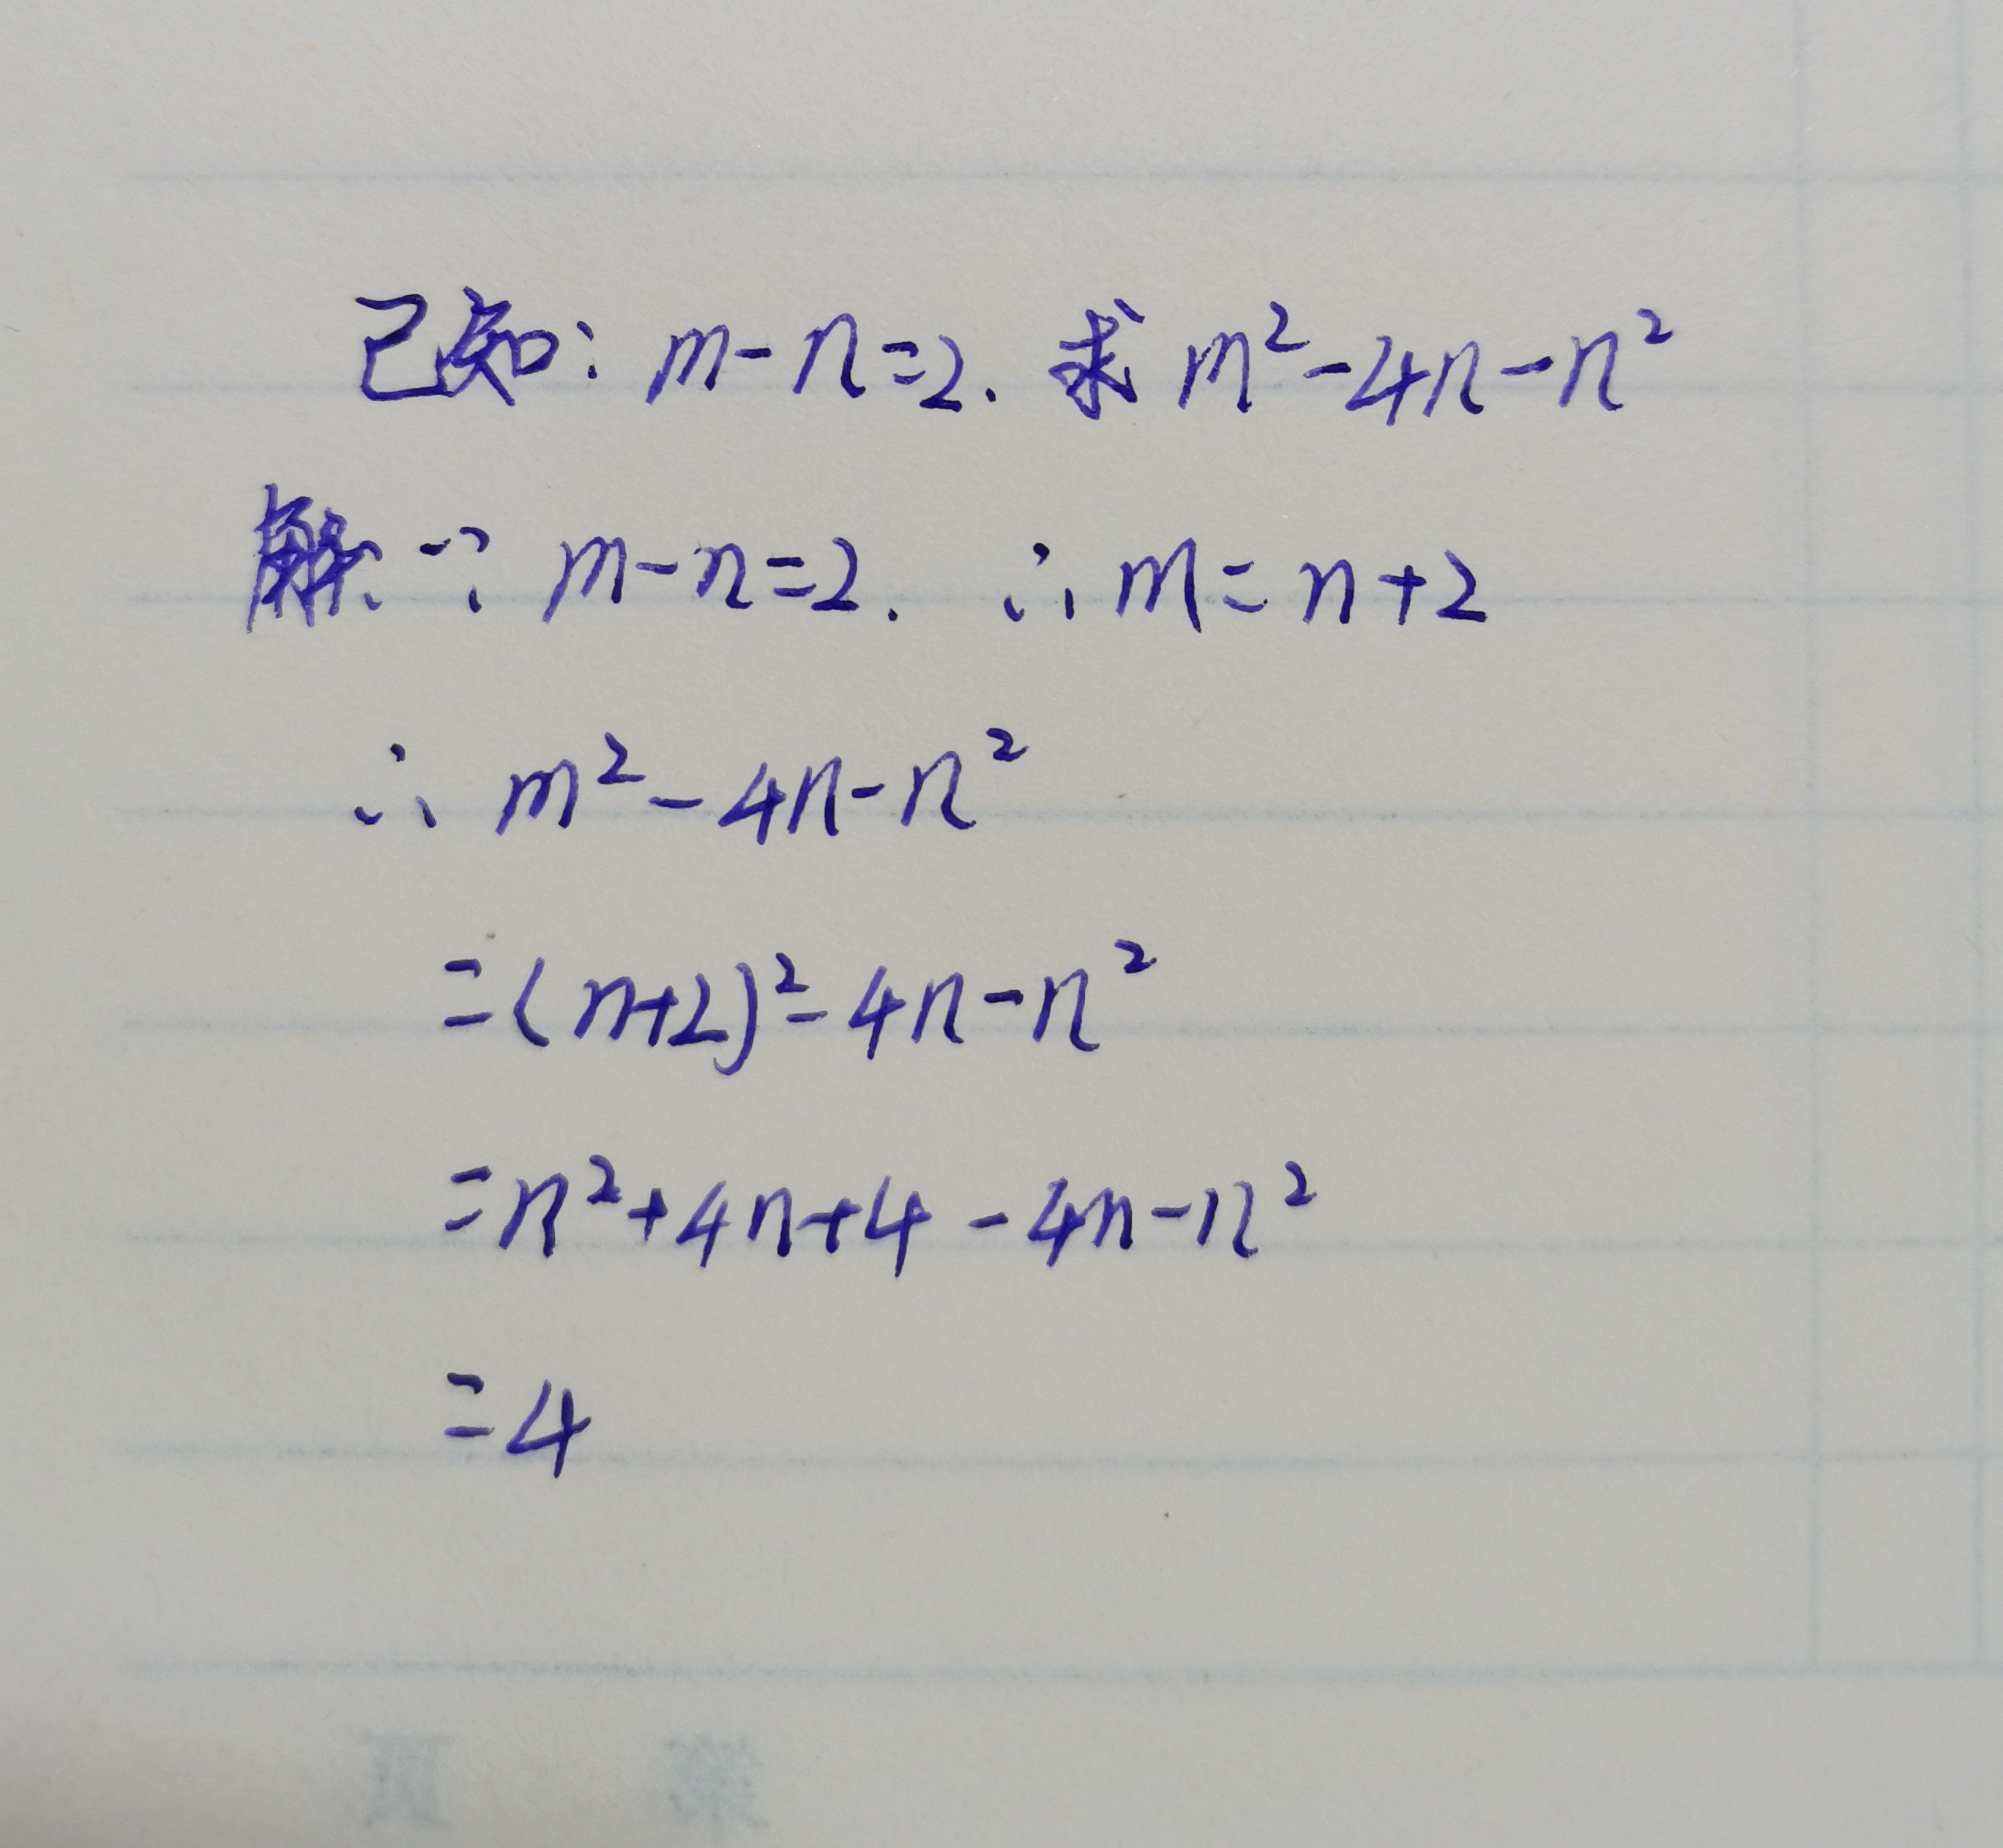 已知: m-n=2. 求 m²-4n-n²
解: ∵ m-n=2. ∴ m=n+2
∴ m²-4n-n²
=(n+2)²-4n-n²
=n²+4n+4-4n-n²
=4